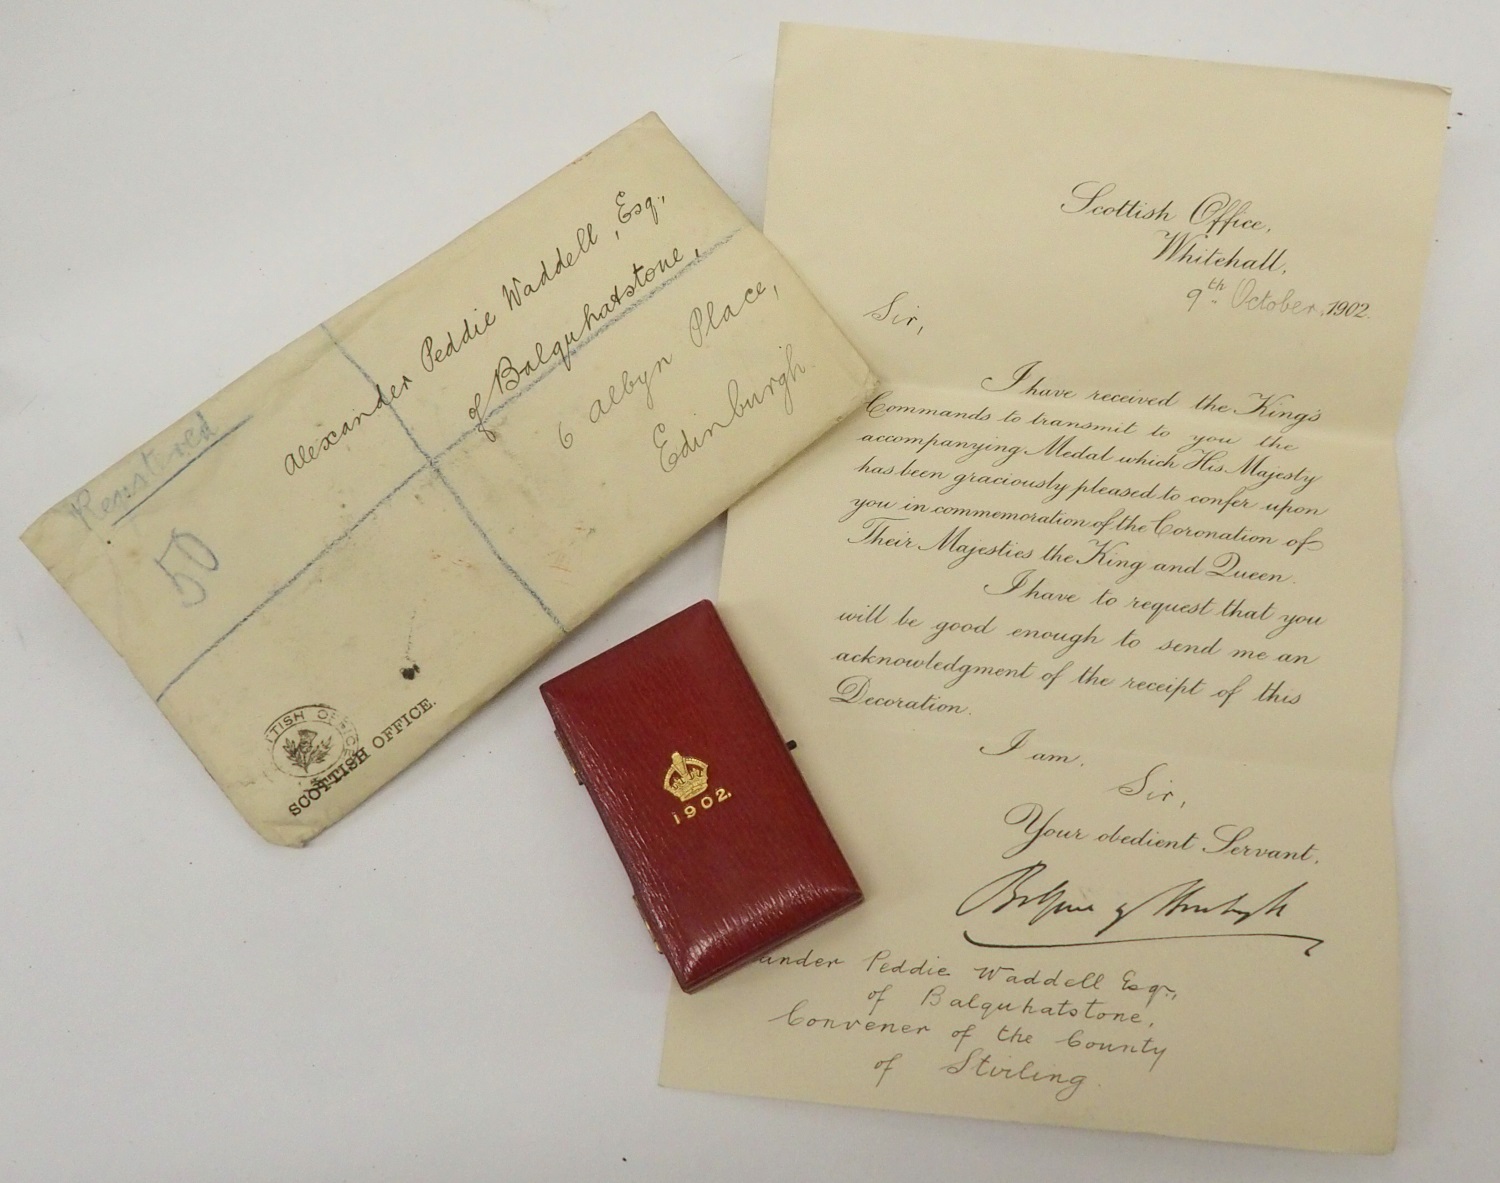 Alexander Peddie Waddell, Esq.,
of Balquhatstone,
6 Albyn Place,
Edinburgh.
Registered
50
SCOTTISH OFFICE.
1902.
Scottish Office,
Whitehall,
9th October, 1902.
Sir,
I have received the King's
Commands to transmit to you the
accompanying Medal which His Majesty
has been graciously pleased to confer upon
you in commemoration of the Coronation of
Their Majesties the King and Queen.
I have to request that you
will be good enough to send me an
acknowledgment of the receipt of this
Decoration.
I am,
Sir,
Your obedient Servant,
Balfour of Burleigh
ander Peddie Waddell Esqr.,
of Balquhatstone,
Convener of the County
of Stirling.